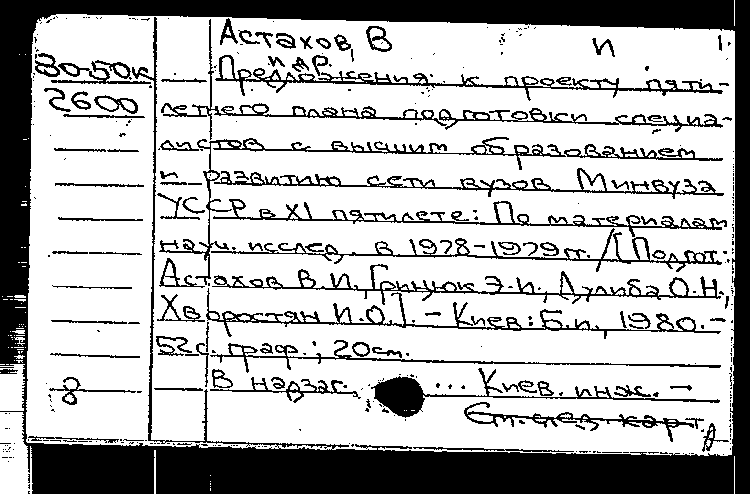 Астахов, В И 1.
и др.
80-50к Предложения к проекту пяти-
2600 летнего плана подготовки специа-
листов с высшим образованием
и развитию сети вузов Минвуза
УССР в XI пятилете: По материалам
науч. исслед. в 1978-1979 гг. / [Подгот.:
Астахов В.И., Грицюк Э.И., Дулиба О.Н.,
Хворостян И.О.]. - Киев: Б.и., 1980. -
52с., граф.; 20см.
8 В надзаг. ... Киев. инж. →
См. след. карт.